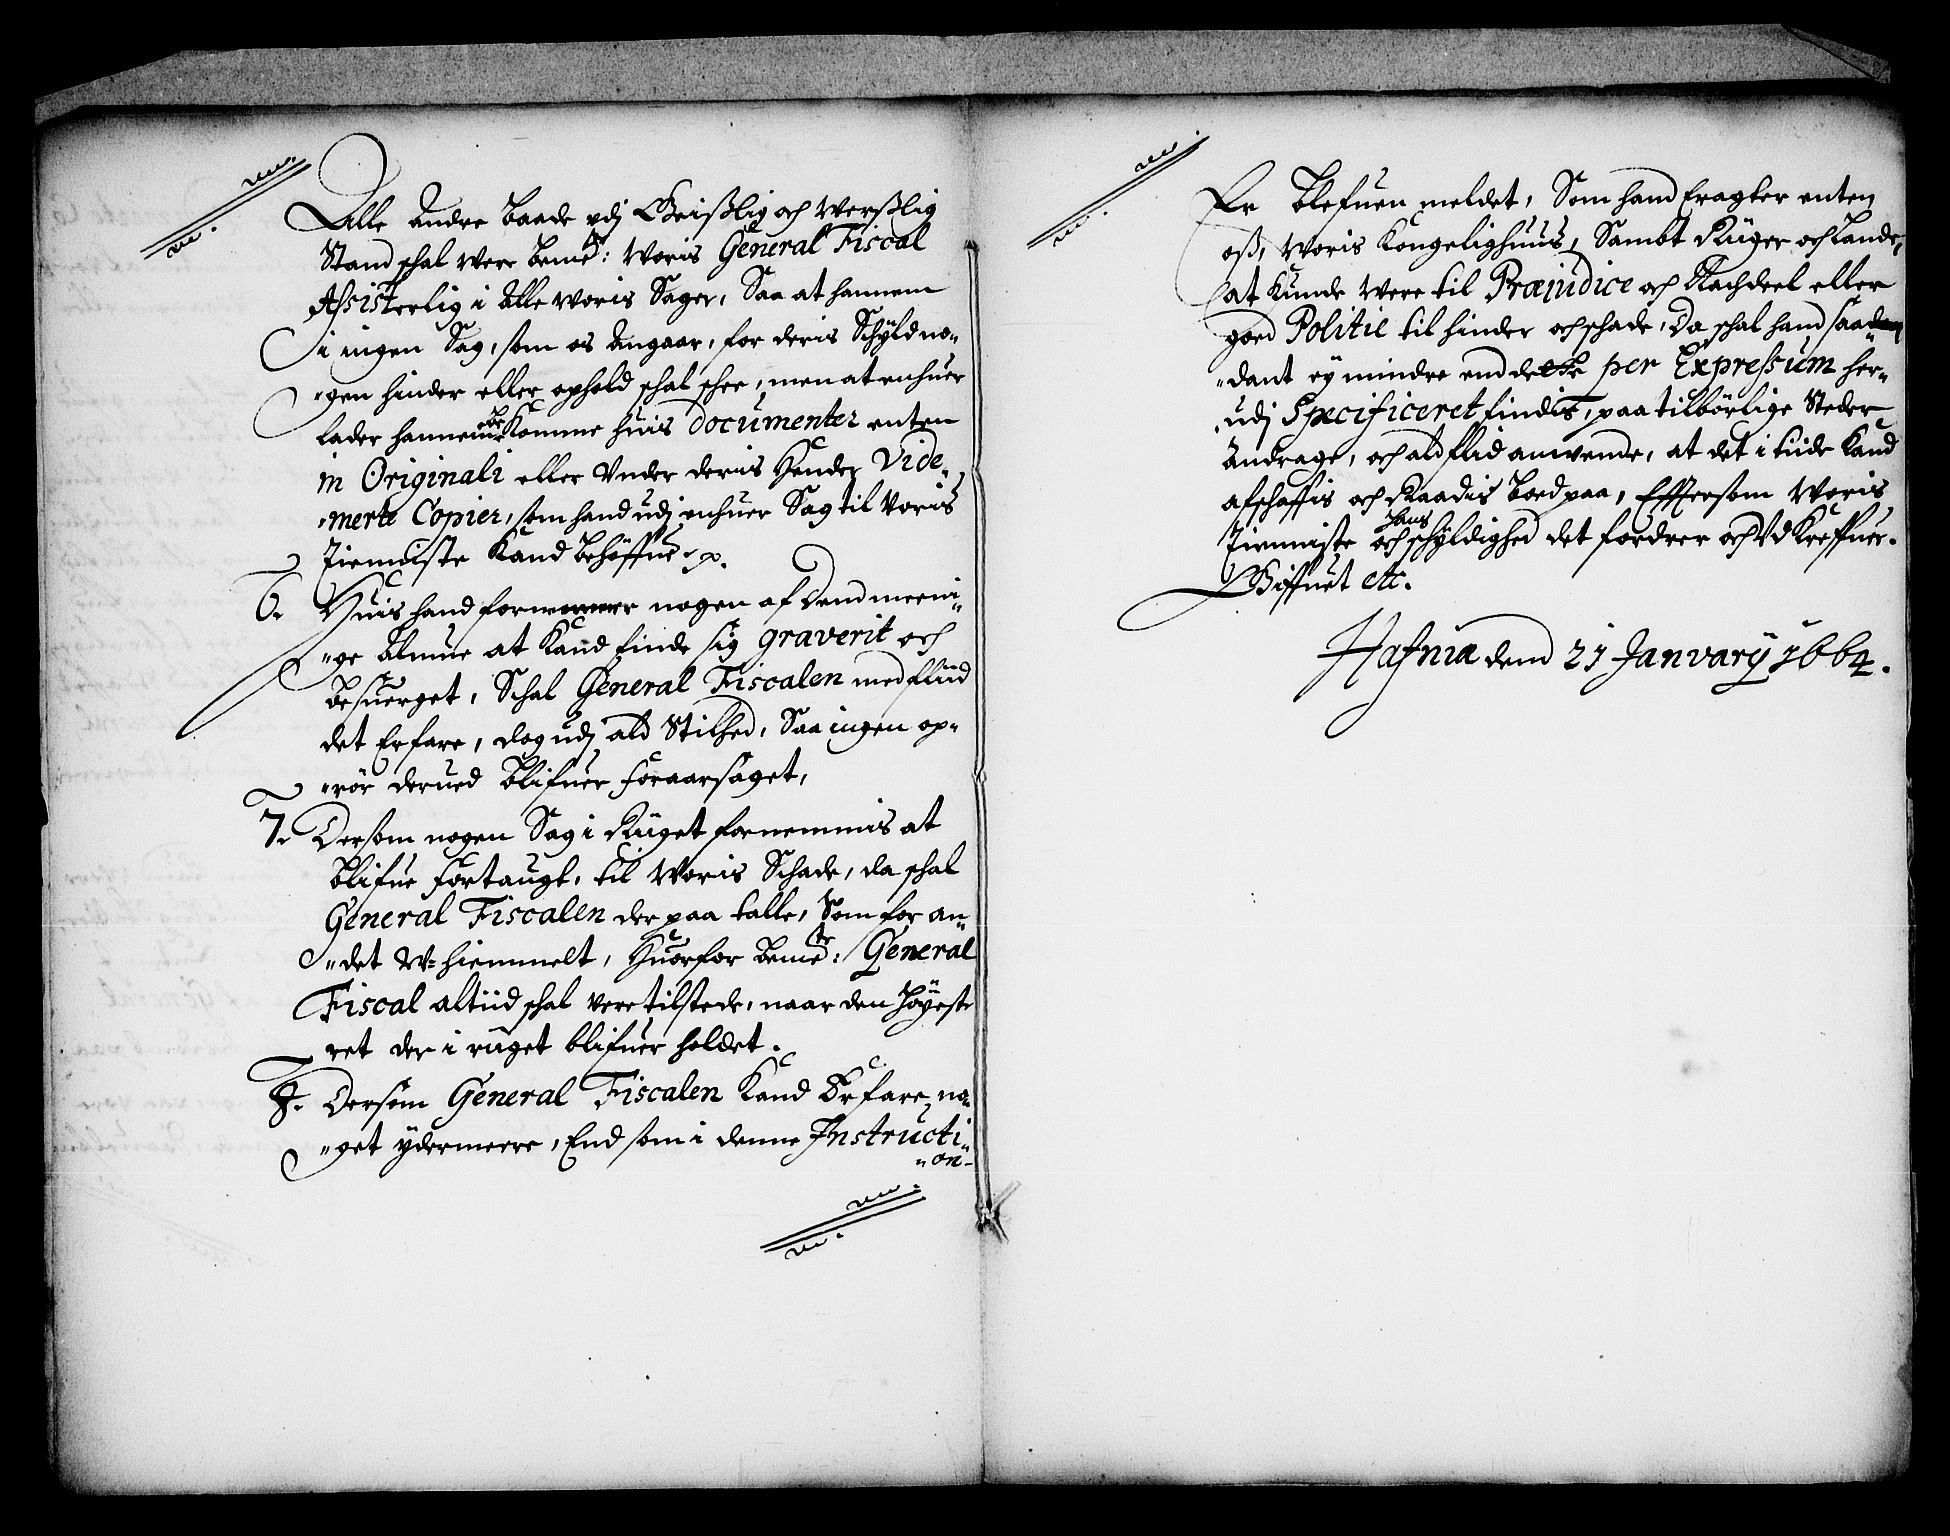 Alle Andre baade udj Geistlig och Verslig
Stand schal were bemte: Woris General Fiscal
Assisterlig i Alle Woris Sager, Saa at hannem
i ingen Sag, som os Angaar, for deris Schyld no-
"gen hinder eller ophold schal schee, men at enhuer
lader hannem beKomme huis documenter enten
in Originali eller Vnder deris Hender Vide-
"merte Copier, som hand udj enhuer Sag til Voris
Tienniste Kand behöffue p.
6. Huis hand fornemmer nogen af dend meeni-
"ge Almue at Kand finde sig graverit och
besuerget, Schal General Fiscalen med fliid
det Erfare, dog udj ald Stilhed, Saa ingen op-
"rör derued blifuer foraarsaget,
7. Dersom nogen Sag i Riiget fornemmis at
blifue fortaugt, til Woris Schade, da schal
General Fiscalen der paa talle, Som for an-
"det W-hiemmelt, Huorfor bemte: General
Fiscal altiid schal vere tilstede, naar den Höyeste
ret der i riiget blifuer holdet.
8. Dersom General Fiscalen Kand Erfare no-
"get ydermeere, End som i denne Instructi-
"on-
Er blefuen meldet, Som hand tragter enten
oss, Woris Kongelighuus, Sambt Riiger och Lande,
at Kunde Were til Præjudice och Nachdeel eller
goed Politie til hinder och schade, Da schal hand saa-
"dant ey mindre end dette per Expressum her-
"udj Specificeret findis, paa tilbörlige Steder
Andrage, och ald flid anvende, at det i tiide Kand
afschaffis och Raadis boed paa, Eftersom Woris
Tienniste och hans schyldighed det fordrer och Vdkreffuer.
Giffuet etc.
Hafniæ dend 21 Janvary 1664.